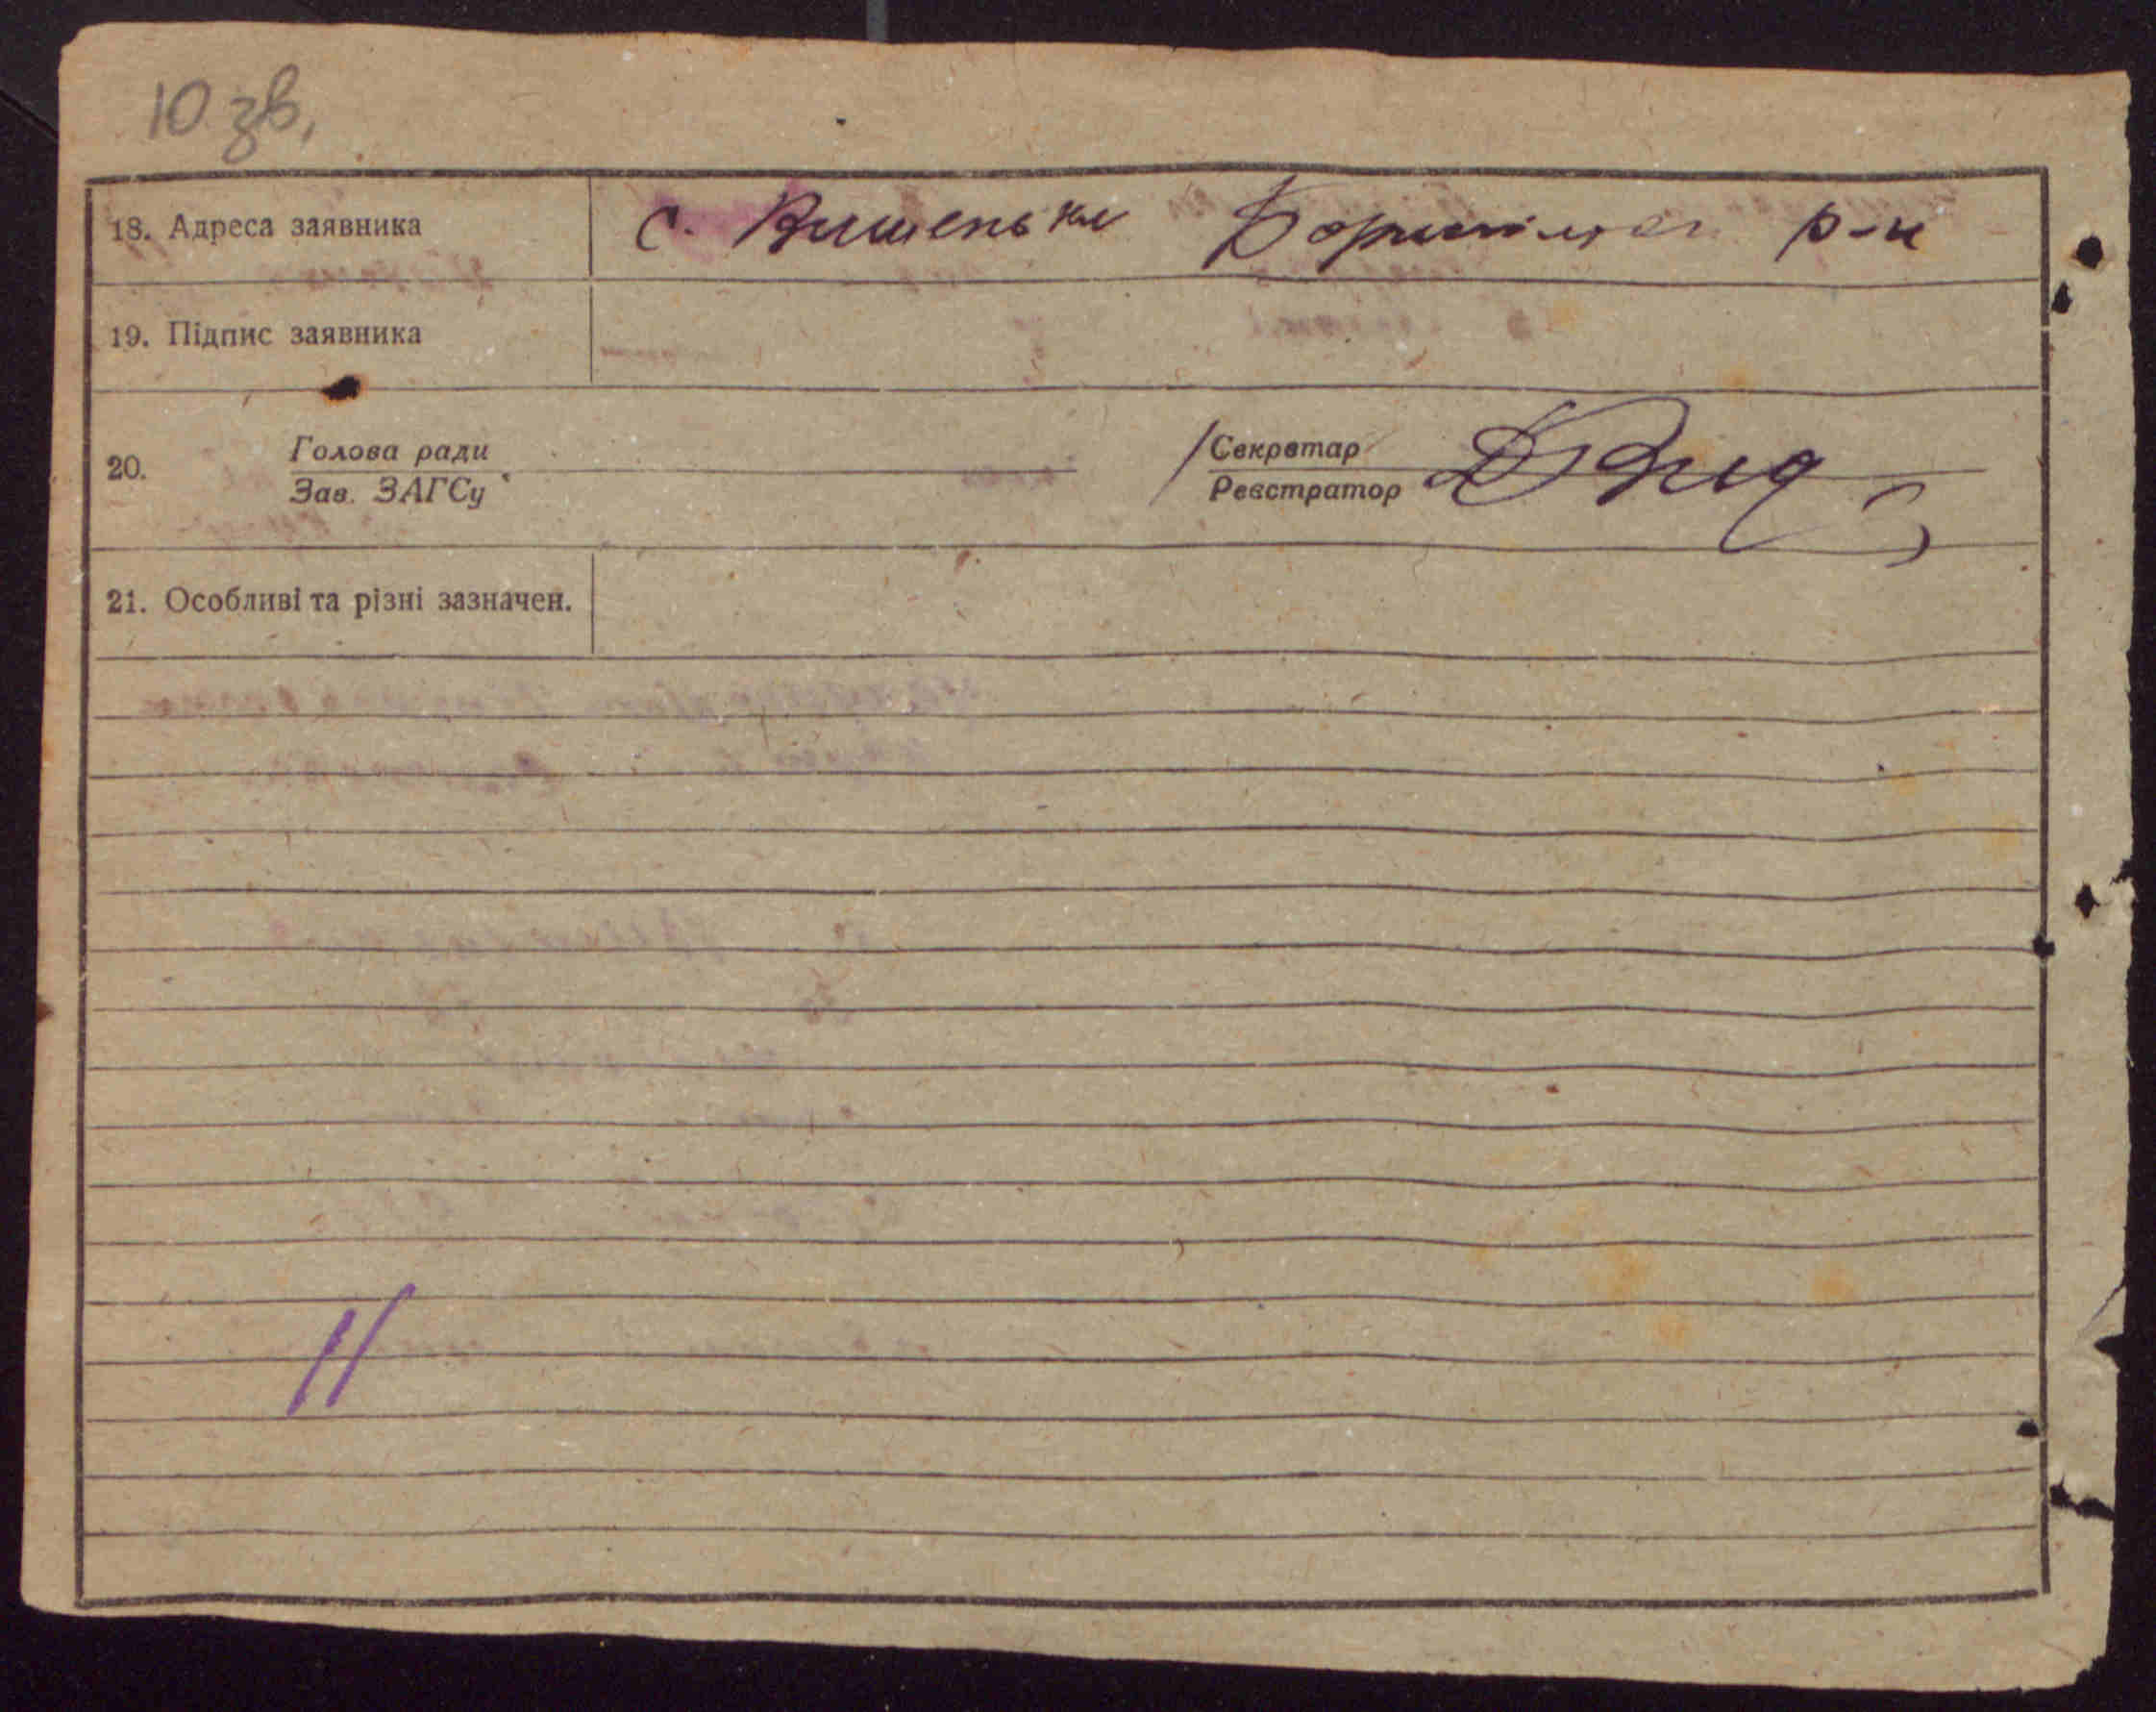 10 зв.
18. Адреса заявника с. Вишеньки Бориспільск р-н
19. Підпис заявника
20. Голова ради
Зав. ЗАГСу
Секретар
Реєстратор
21. Особливі та різні зазначен.